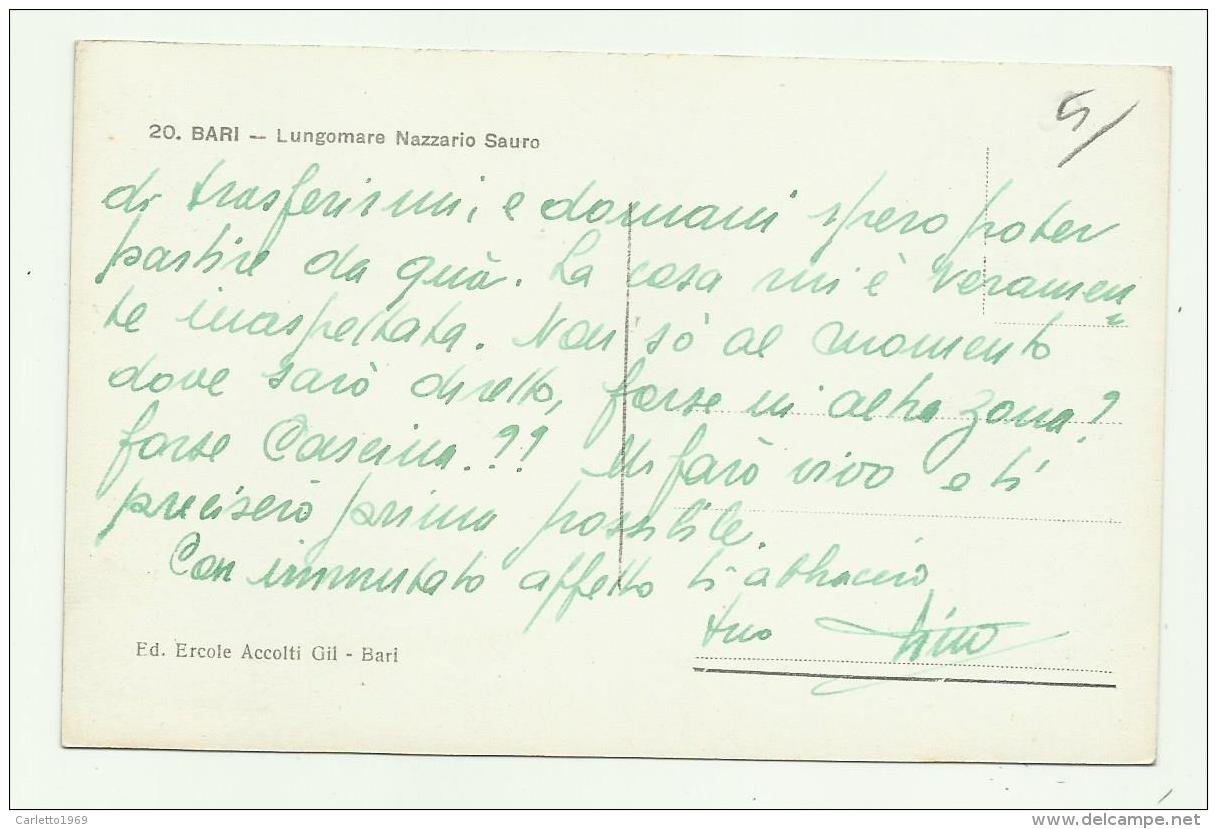 5/
20. BARI — Lungomare Nazzario Sauro
di trasferirmi, e domani spero poter
partire da quà. La cosa mi è veramen=
te inaspettata. Non sò al momento
dove sarò diretto, forse in altra zona?
forse Cascina.?? Mi farò vivo e ti
preciserò prima possibile.
Con immutato affetto ti abbraccio
tuo
Ed. Ercole Accolti Gil - Bari
Carletto1969
delcampe.net